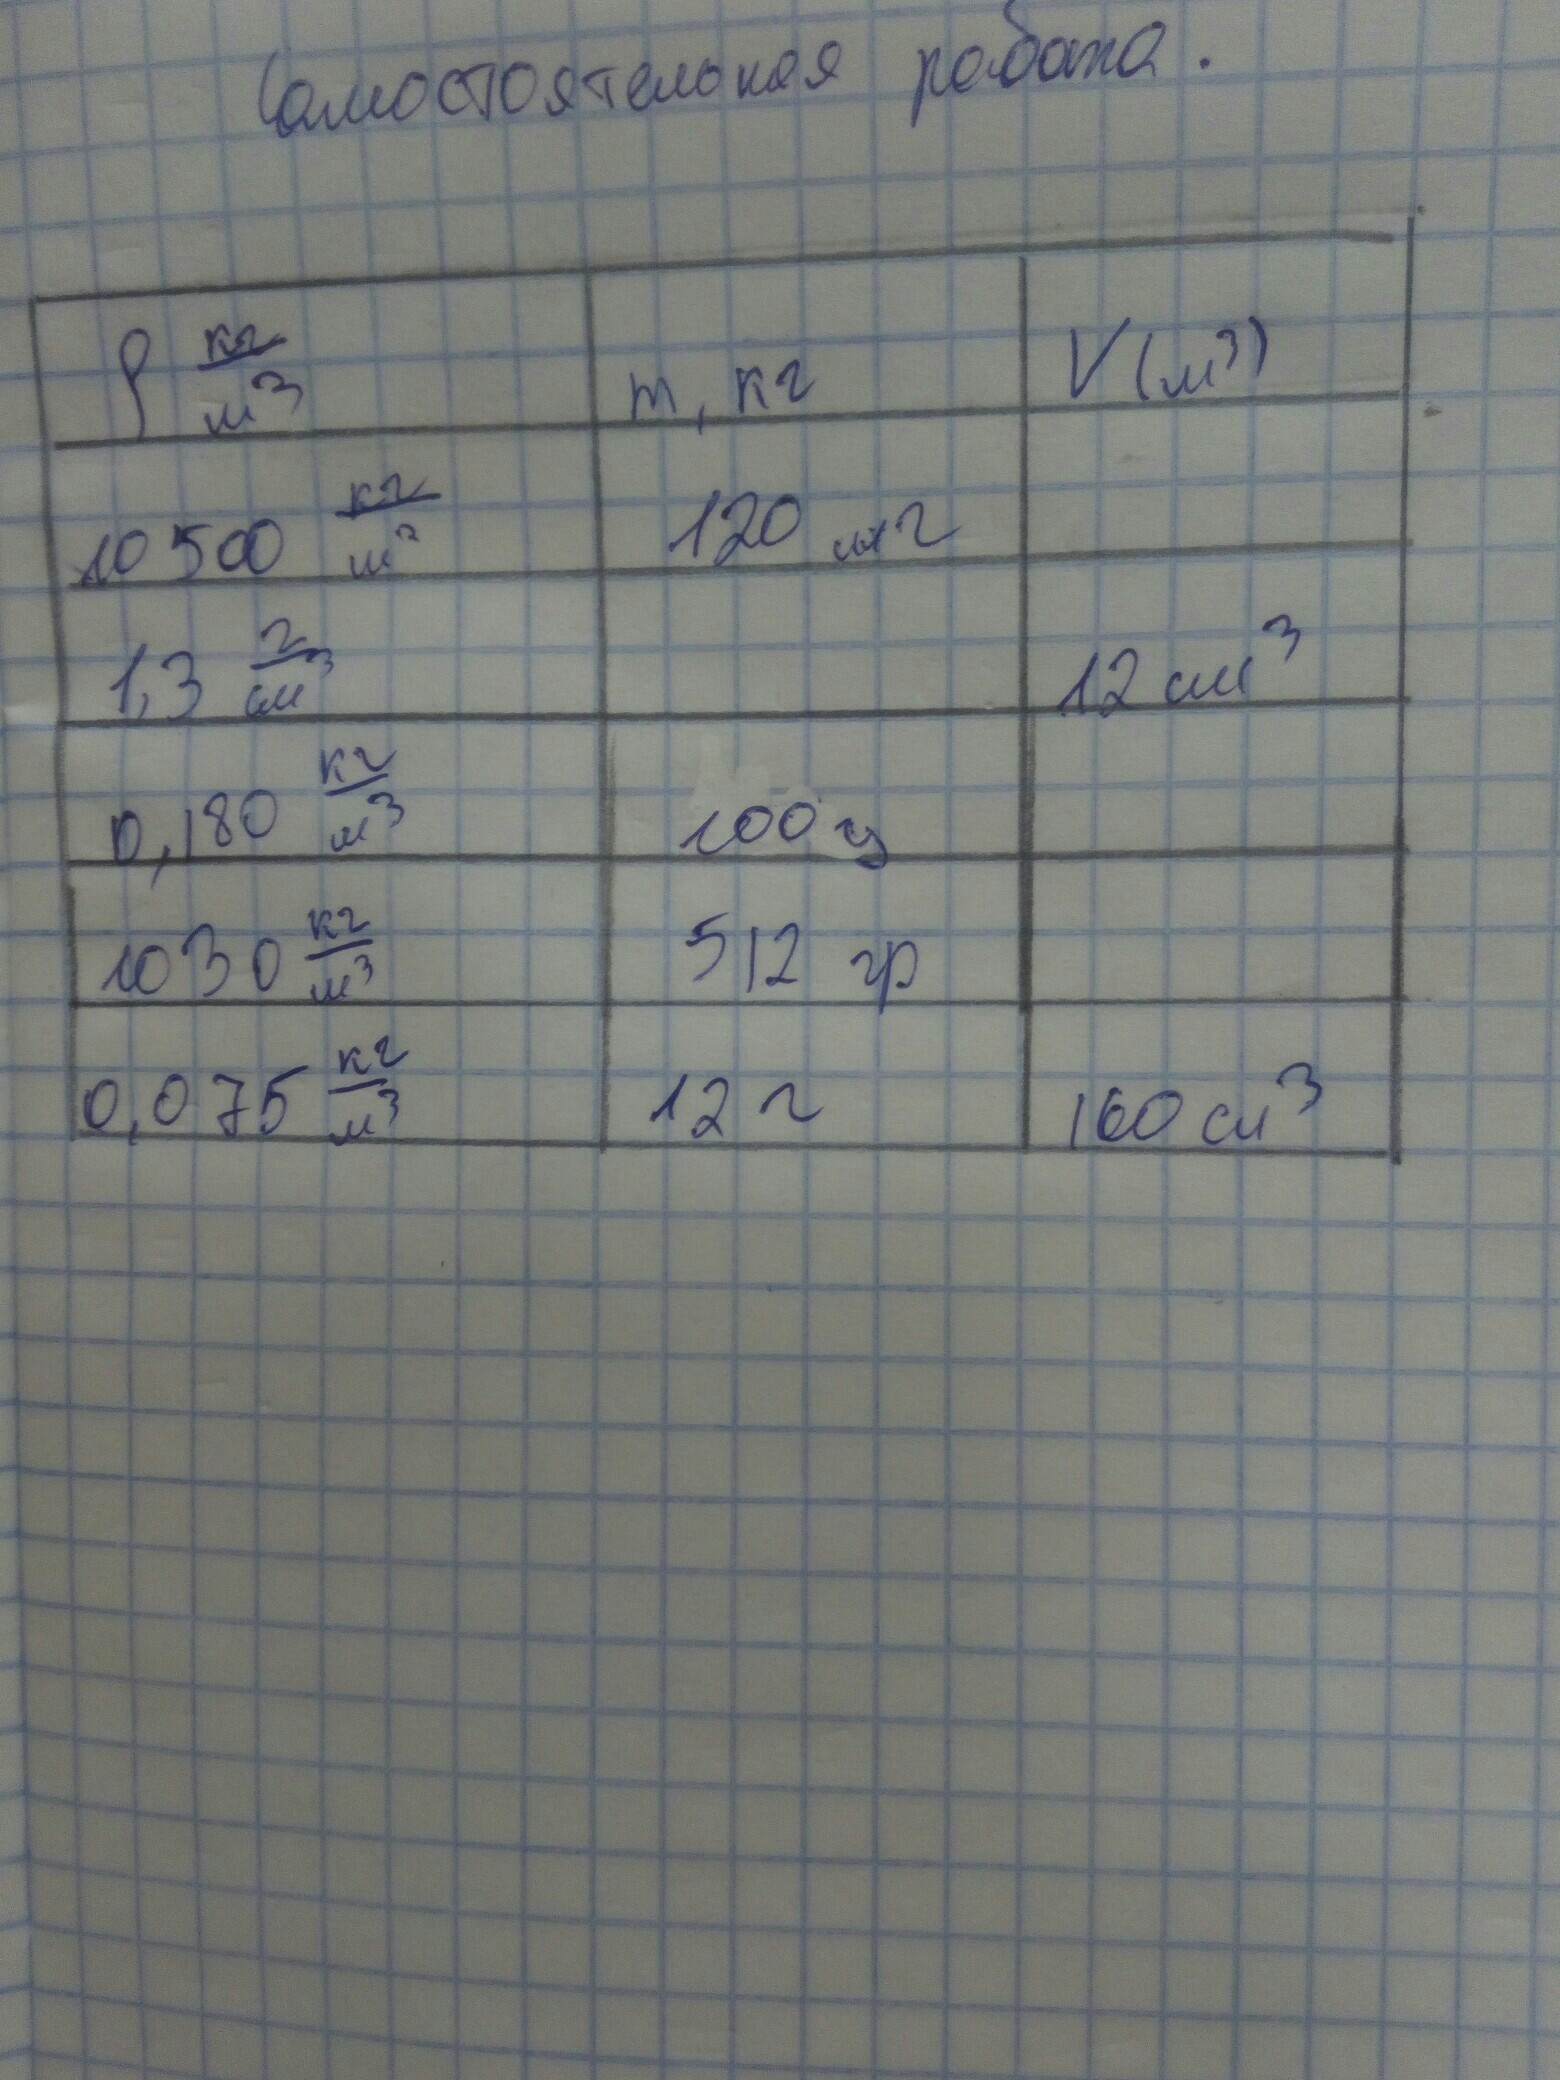 Самостоятельная работа.
ρ кг/м³ m, кг V(м³)
10 500 кг/м³ 120 мг
1,3 г/см³ 12 см³
0,180 кг/м³ 100 ц
1030 кг/м³ 512 гр
0,075 кг/м³ 12 г 160 см³